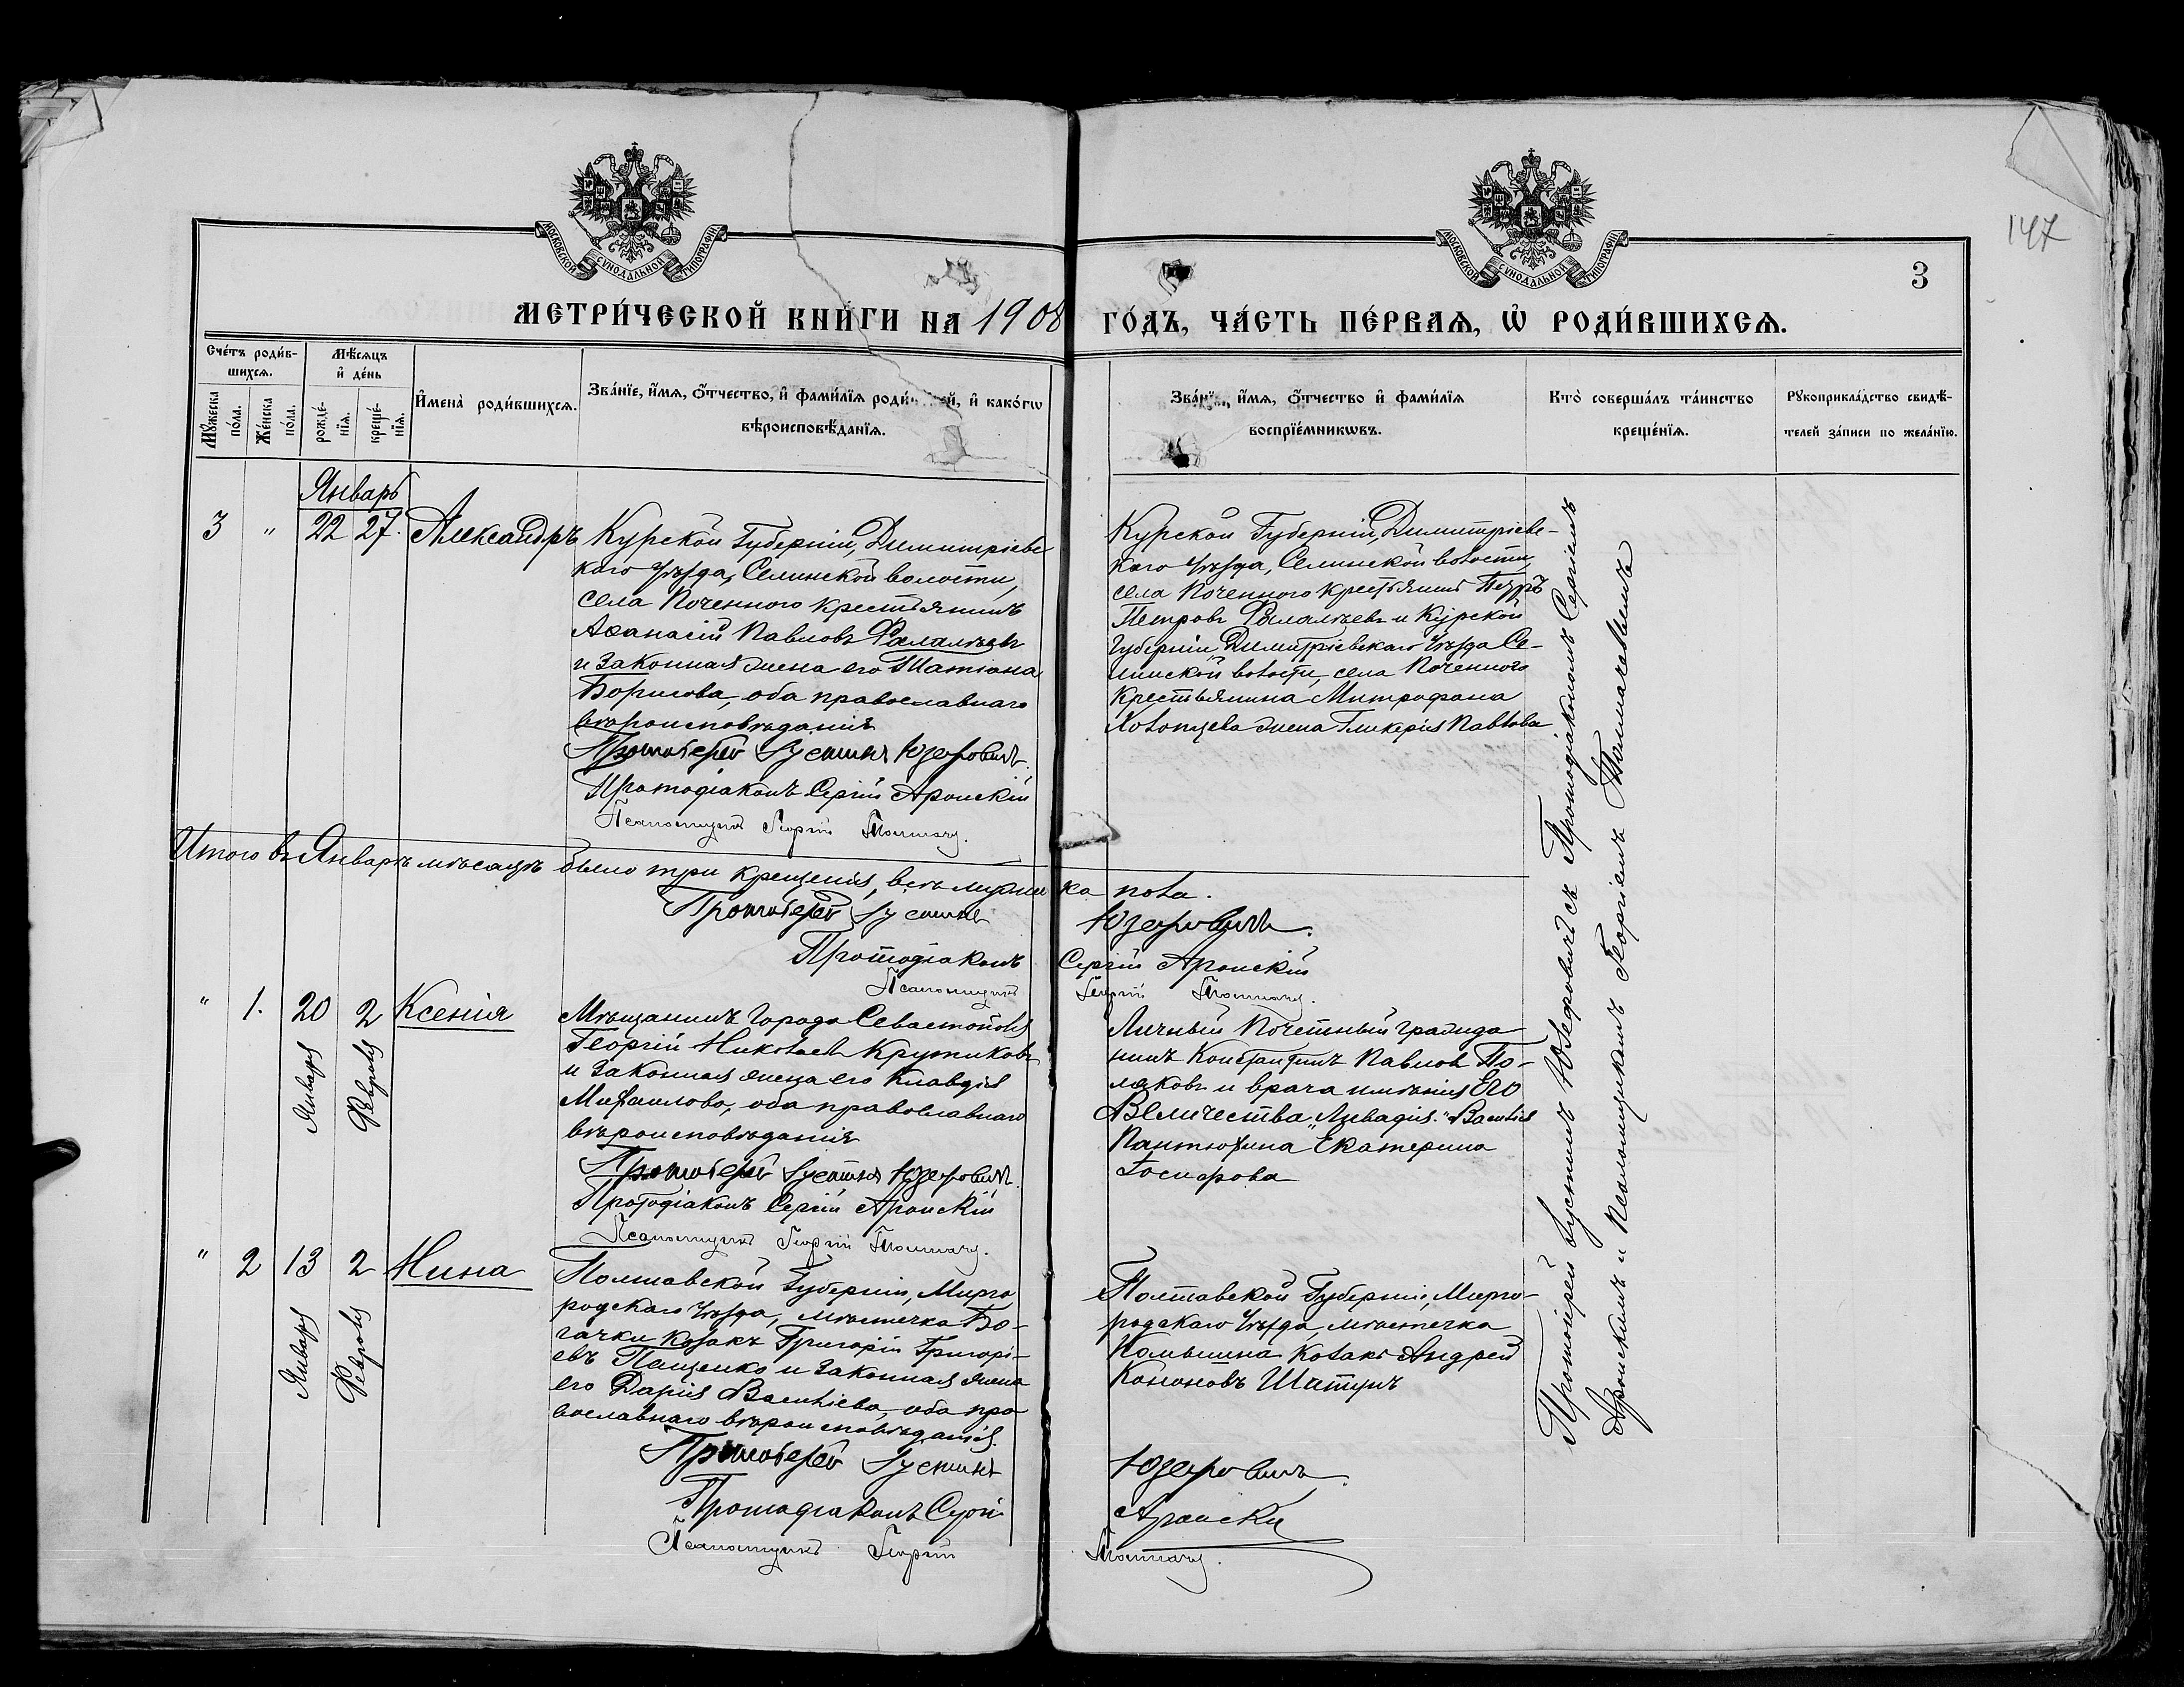 147
МОСКОВСКОЙ СѴНОДАЛЬНОЙ ТИПОГРАФІИ
МОСКОВСКОЙ СѴНОДАЛЬНОЙ ТИПОГРАФІИ
3
МЕТРИ́ЧЕСКОЙ КНИ́ГИ НА 1908 ГО́ДЪ, ЧА́СТЬ ПЕ́РВАѦ, Ѡ҆ РОДИ́ВШИХСѦ.
Сче́тъ роди́в-
шихсѧ.
Мꙋ́жеска по́ла.
Же́нска по́ла.
Мѣ́сѧцъ
и҆ де́нь
рожде́-
нїѧ.
креще́-
нїѧ.
И҆мена̀ роди́вшихсѧ.
Зва́нїе, и҆́мѧ, ѻ҆́тчество, и҆ фами́лїѧ роди́ ей, и҆ како́гѡ
вѣроисповѣ́данїѧ.
Зва́нїе, и҆́мѧ, ѻ҆́тчество и҆ фами́лїѧ
воспрїе́мникѡвъ.
Кто̀ соверша́лъ та́инство
креще́нїѧ.
Рꙋкоприкла́дство свидѣ́-
телей за́писи по жела́нїю.
Январь
3 " 22 27. Александръ
Курской Губерніи, Димитріевс
каго Уѣзда, Селинской волости,
села Поченного крестьянинъ
Аѳанасій Павловъ Фалалѣевъ
и законная жена его Татіана
Борисова, оба православнаго
вѣроисповѣданія
Протоіерей Іустинъ Юзефовичъ.
Протодіаконъ Сергій Аронскій
Псаломщикъ Георгій Толмач.
Курской Губерніи, Димитріевс-
каго Уѣзда, Селинской волости,
села Поченного крестьянинъ Петръ
Петровъ Фалалѣевъ и Курской
Губерніи, Димитріевскаго Уѣзда Се-
линской волости, села Поченного
крестьянина Митрофана
жена Гликерія Павлова
Протоіерей Іустинъ Юзефовичъ съ Протодіакономъ Сергіемъ
Аронскимъ и Псаломщикомъ Георгіемъ Толмачевымъ
Итого въ Январѣ мѣсяцѣ было три крещенія, всѣ мужска пола.
Протоіерей Іустинъ Юзефовичъ.
Протодіаконъ Сергій Аронскій
Псаломщикъ Георгій Толмач.
" 1. 20 Января 2 Февраля Ксенія
Мѣщанинъ города Севастополя
Георгій Николаевъ Крутиковъ
и законная жена его Клавдія
Михаилова, оба православнаго
вѣроисповѣданія
Протоіерей Іустинъ Юзефовичъ.
Протодіаконъ Сергій Аронскій
Псаломщикъ Георгій Толмач.
Личный Почетный гражда
нинъ Константинъ Павловъ По-
ляковъ и врача имѣнія Его
Величества „Ливадія" Василія
Пантюхина Екатерина
" 2 13 Января 2 Февраля Нина
Полтавской Губерніи, Мирго
родскаго Уѣзда, мѣстечка Бо-
гачки козакъ Григорій Григорі-
евъ Пащенко и законная жена
его Дарія Василіева, оба пра
вославнаго вѣроисповѣданія.
Протоіерей Іустинъ Юзефовичъ.
Протодіаконъ Сергій Аронскій
Псаломщикъ Георгій Толмач.
Полтавской Губерніи, Мирго-
родскаго Уѣзда, мѣстечка
Комышна козакъ Андрей
Кононовъ Шатунъ